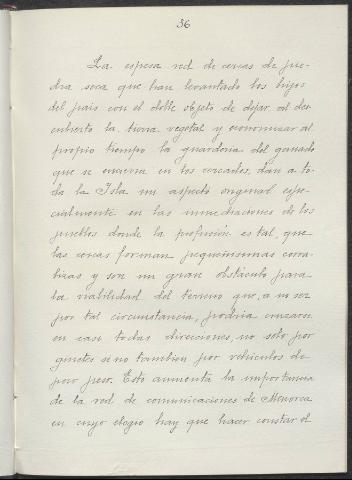 36
La espesa red de cercas de pie-
dra seca que han levantado los hijos
del pais con el doble objeto de dejar al des-
cubierto la tierra vegetal y economizar al
propio tiempo la guarderia del ganado
que se encierra en los cercados, dan a to-
da la Isla un aspecto original espe-
cialmente en las inmediaciones de los
pueblos donde la profusión es tal, que
las cercas forman pequeñisimas corra-
lizas y son un gran obstáculo para
la viabilidad del terreno que, a no ser
por tal circunstancia, podria cruzarse
en casi todas direcciones, no solo por
ginetes si no tambien por vehiculos de
poco peso. Esto aumenta la importancia
de la red de comunicaciones de Menorca
en cuyo elogio hay que hacer constar el